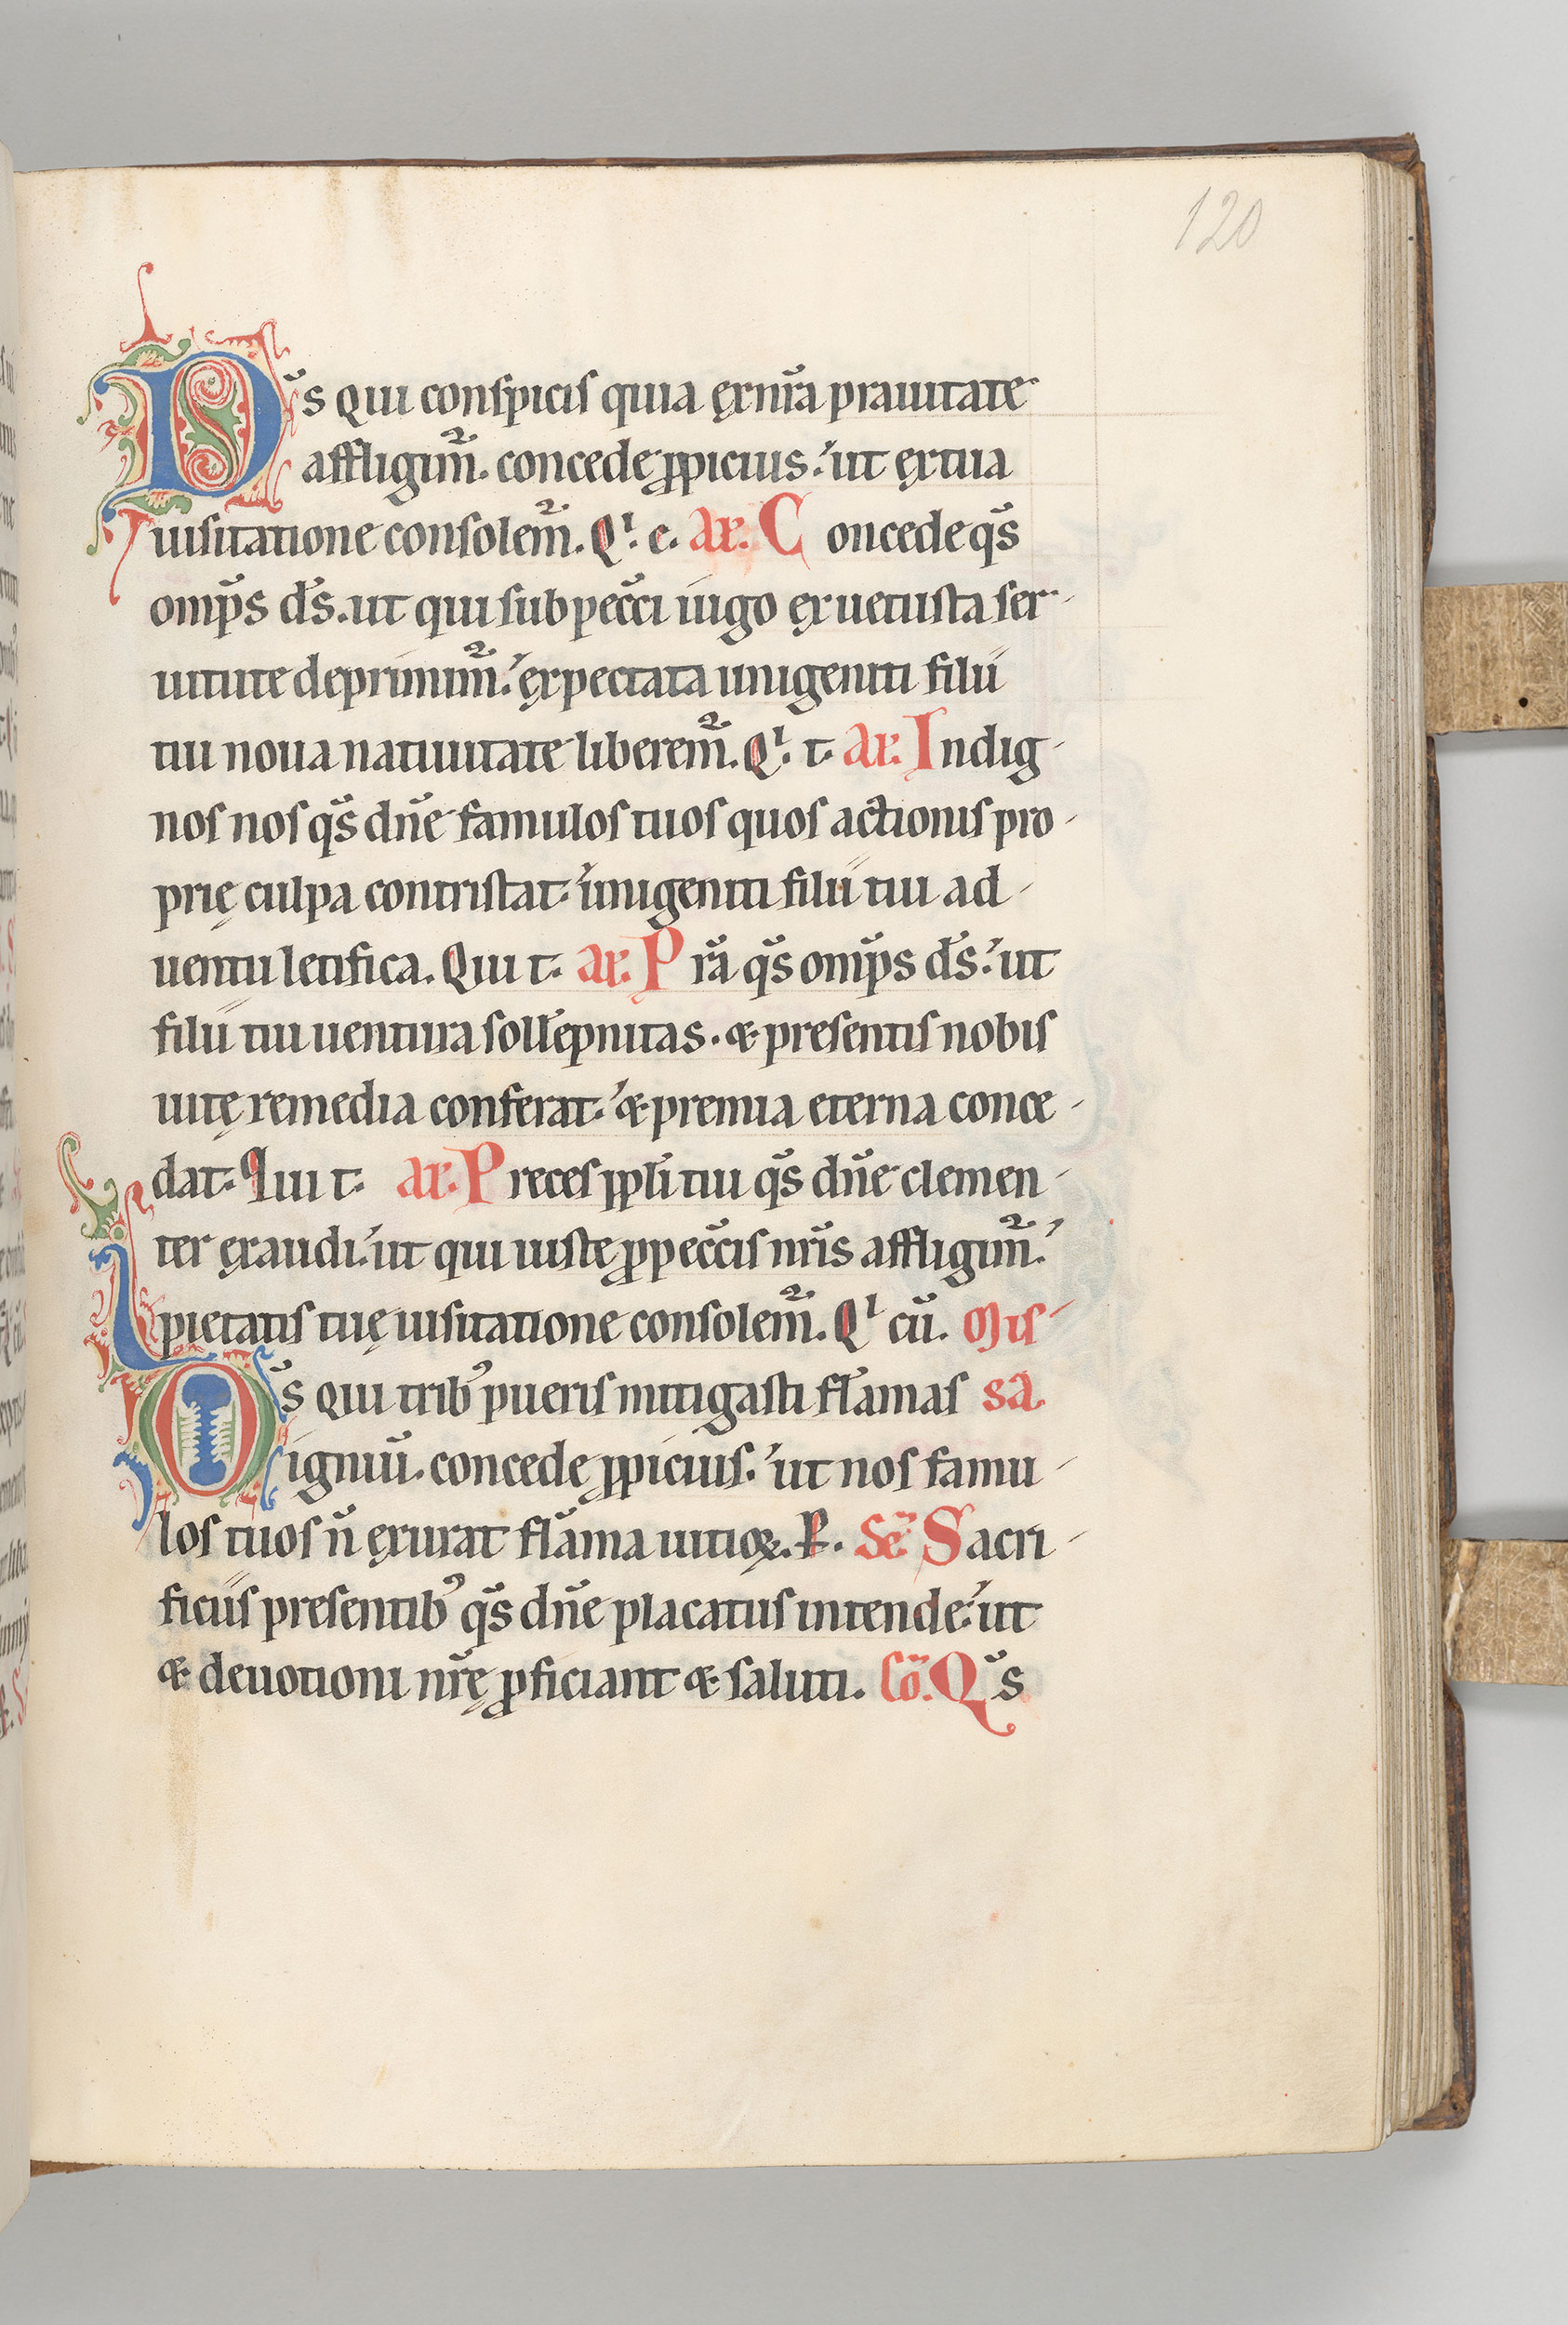 120
Ds qui conspicis quia ex nr̄a prauitate
affligim̄. concede ꝓpicius. ut ex tua
uisitatione consolem̄. Qi. c. aƚ. Concede qs̄
omp̄s ds̄. ut qui sub pecc̄i iugo ex uetusta ser-
uitute deprimim̄. expectata unigeniti filii
tui noua natiuitate liberem̄. Qi. t. aƚ. Indig-
nos nos qs̄ dn̄e famulos tuos quos actionis pro-
prię culpa contristat. unigeniti filii tui ad-
uentu letifica. Qui t. aƚ. Pr̄a qs̄ omp̄s ds̄. ut
filii tui uentura sollēpnitas. & presentis nobis
uitę remedia conferat. & premia eterna conce-
dat. Qui t. aƚ. Preces ppl̄i tui qs̄ dn̄e clemen-
ter exaudi. ut qui iuste ꝓ pecc̄is nr̄is affligim̄.
pietatis tuę uisitatione consolem̄. Qi cū. Mis-
Ds qui tribꝰ pueris mitigasti flāmas sa.
igniū. concede ꝓpicius. ut nos famu-
los tuos n̄ exurat flāma uitioꝝ. P. Sē Sacri-
ficiis presentibꝰ qs̄ dn̄e placatus intende. ut
& deuotioni nr̄ę ꝓficiant & saluti. Cō. Qs̄